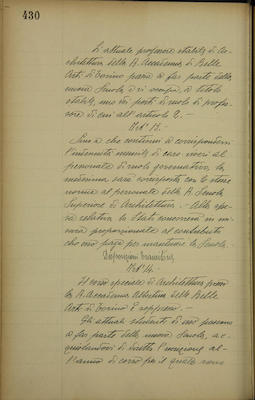 430
L'attuale professore stabile di Ar-
chitettura della R. Accademia di Belle
Arti di Torino passa a far parte della
nuova Scuola e vi occupa, a titolo
stabile, uno dei posti di ruolo di profes-
sore di cui all'articolo 2. —
Art.° 13. —
Sino a che continui a corrispondersi
l'indennità mensile di caro viveri al
personale di ruolo governativo, la
medesima sarà corrisposta con le stesse
norme al personale della R. Scuola
Superiore di Architettura. — Alla spe-
sa relativa lo Stato concorrerà in mi-
sura proporzionale al contributo
che esso paga per mantenere la Scuola.
Disposizioni transitorie
Art.° 14. —
Il corso speciale di Architettura presso
la R. Accademia Albertina delle Belle
Arti di Torino è soppresso. —
Gli attuali studenti di esso passano
a far parte della nuova Scuola, ac-
quistandovi il diritto d'iscrizione al-
l'anno di corso per il quale sono